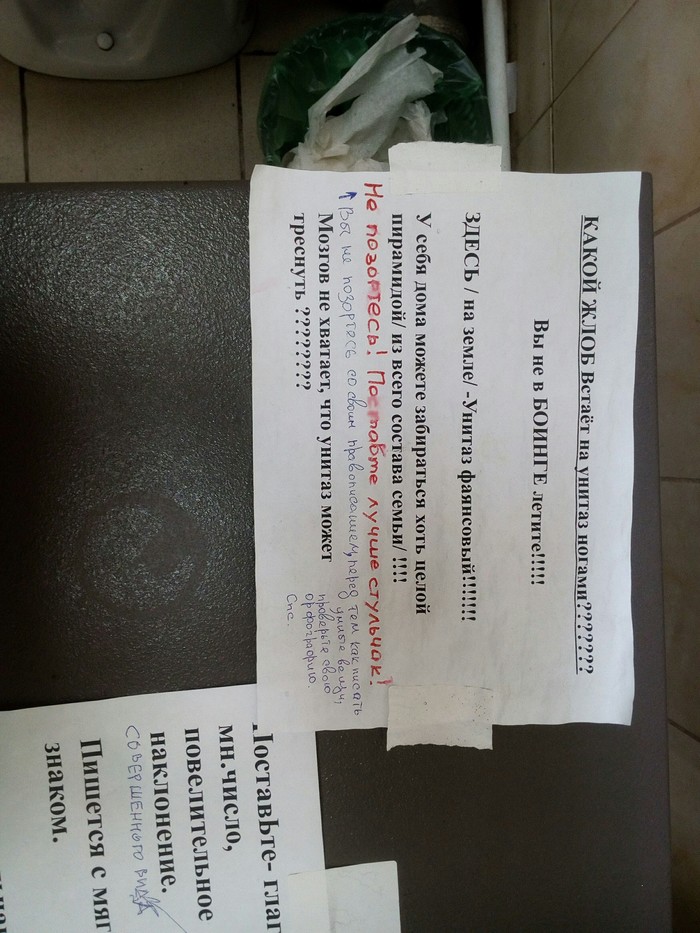 КАКОЙ ЖЛОБ Встаёт на унитаз ногами???????
Вы не в БОИНГЕ летите!!!!!
ЗДЕСЬ / на земле/ -Унитаз фаянсовый!!!!!!!
У себя дома можете забираться хоть целой
пирамидой/ из всего состава семьи/ !!!!
Не позортесь! Поставте лучше стульчак!
↑ Вы не позортесь со своим правописанием, перед тем как писать
умные вещи,
проверьте свою
орфографию.
Спс.
Мозгов не хватает, что унитаз может
треснуть ????????
ПоставЬте- глаг
мн.число,
повелительное
наклонение.
СОВЕРШЕННОГО ВИДА
Пишется с мяг
знаком.